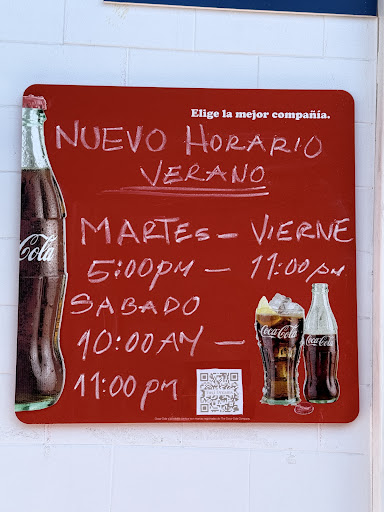 Elige la mejor compañía.
NUEVO HORARIO
VERANO
MARTES - VIERNE
5:00PM - 11:00PM
SABADO
10:00 AM -
11:00 PM
Coca-Cola
Coca-Cola
Cola